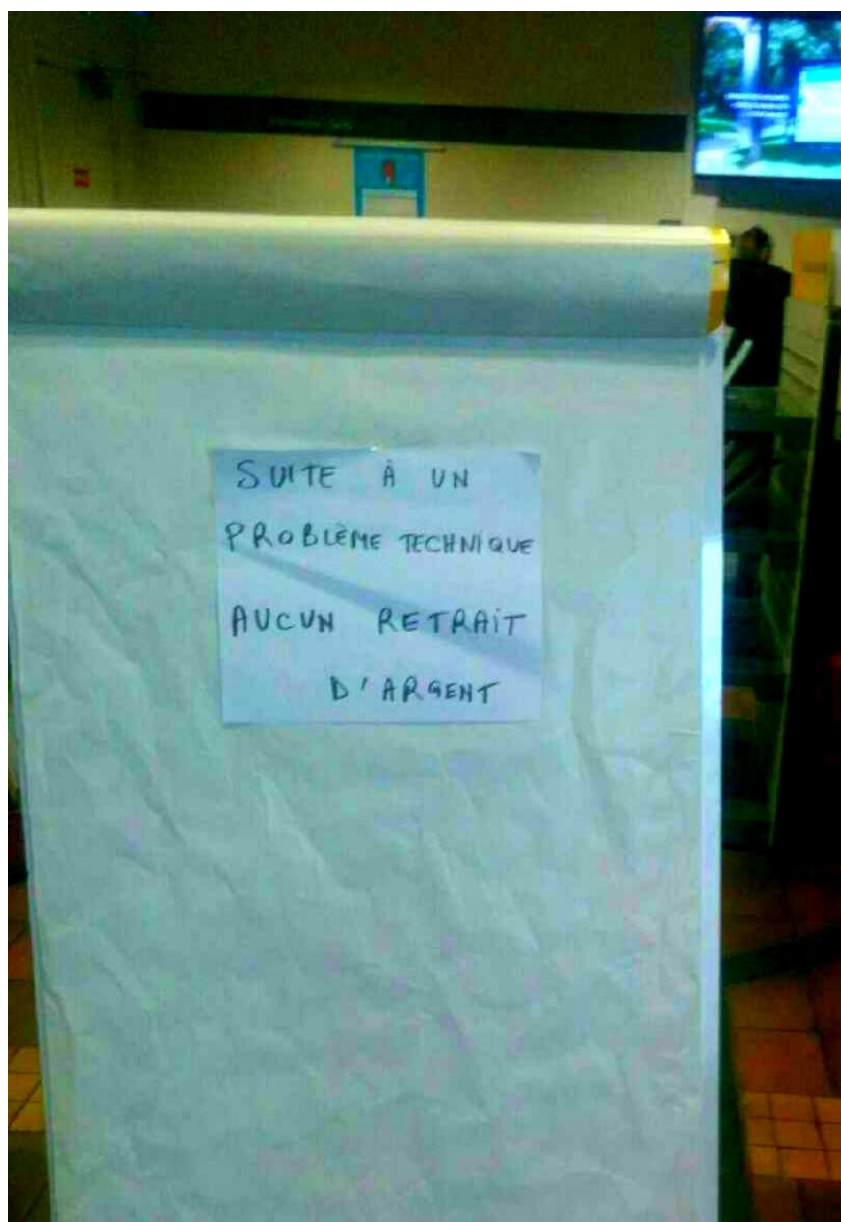 SUITE À UN
PROBLÈME TECHNIQUE
AUCUN RETRAiT
D'ARGENT